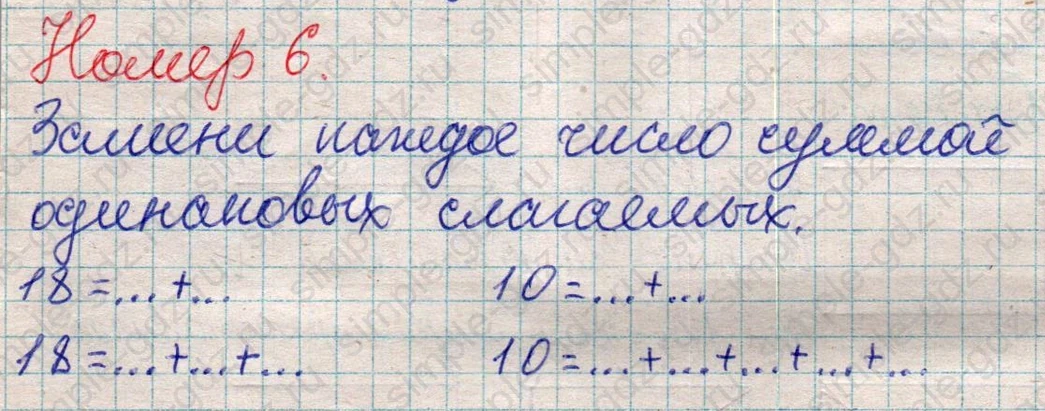 Номер 6.
Замени каждое число суммой
одинаковых слагаемых.
18=...+... 10=...+...
18=...+...+... 10=...+...+...+...+...